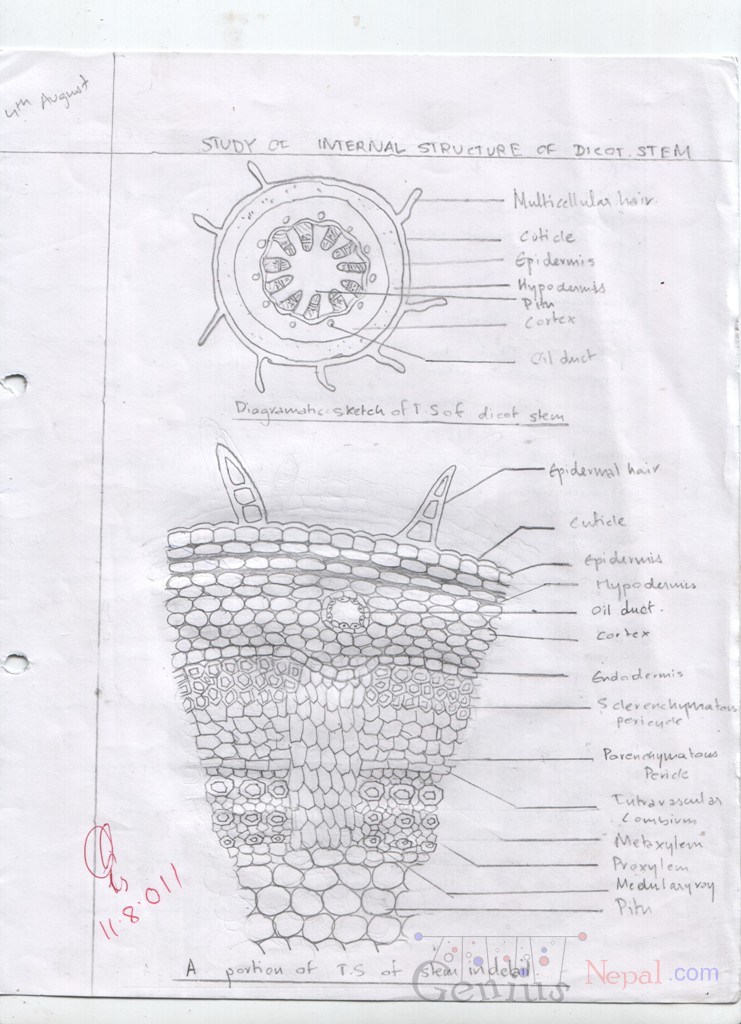 4th August
STUDY OF INTERNAL STRUCTURE OF DICOT. STEM
Multicellular hair
Cuticle
Epidermis
Hypodermis
Pith
Cortex
Oil duct
Diagramatic sketch of T.S of dicot stem
Epidermal hair
Cuticle
Epidermis
Hypodermis
Oil duct.
Cortex
Endodermis
Sclerenchymatous
pericycle
Parenchymatous
Pericle
Intravascular
Combium
Metaxylem
Proxylem
Medularyray
Pith
11.8.011
A portion of T.S of stem indetail.
Genius Nepal.com